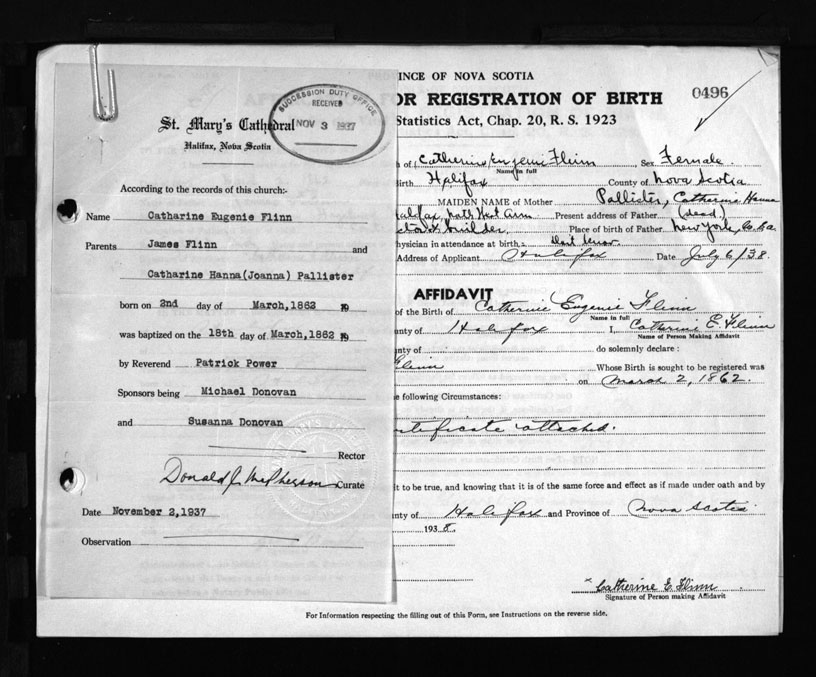 St. Mary's Cathedral
Halifax, Nova Scotia
SUCCESSION DUTY OFFICE
RECEIVED
NOV 3 1937
According to the records of this church:-
Name Catharine Eugenie Flinn
Parents James Flinn and
Catharine Hanna(Joanna) Pallister
born on 2nd day of March,1862 19
was baptized on the 18th day of March,1862 19
by Reverend Patrick Power
Sponsors being Michael Donovan
and Susanna Donovan
Rector
Donald J. McPherson Curate
Date November 2,1937
Observation
INCE OF NOVA SCOTIA
OR REGISTRATION OF BIRTH 0496
Statistics Act, Chap. 20, R. S. 1923
h of Catherine Eugenie Flinn, Sex Female.
Name in full
Birth Halifax County of Nova Scotia
MAIDEN NAME of Mother Pallister, Catherine Hanna
Halifax, North West Arm Present address of Father (dead)
ctor & builder. Place of birth of Father New York,
hysician in attendance at birth
Address of Applicant Halifax Date July 6/38.
AFFIDAVIT
of the Birth of Catherine Eugenie Flinn
Name in full
unty of Halifax I, Catherine E. Flinn
Name of Person Making Affidavit
unty of do solemnly declare :
Flinn Whose Birth is sought to be registered was
on March 2, 1862.
e following Circumstances:
rtificate attached.
it to be true, and knowing that it is of the same force and effect as if made under oath and by
unty of Halifax and Province of Nova Scotia
1938.
x Catherine E. Flinn
Signature of Person making Affidavit
For Information respecting the filling out of this Form, see Instructions on the reverse side.